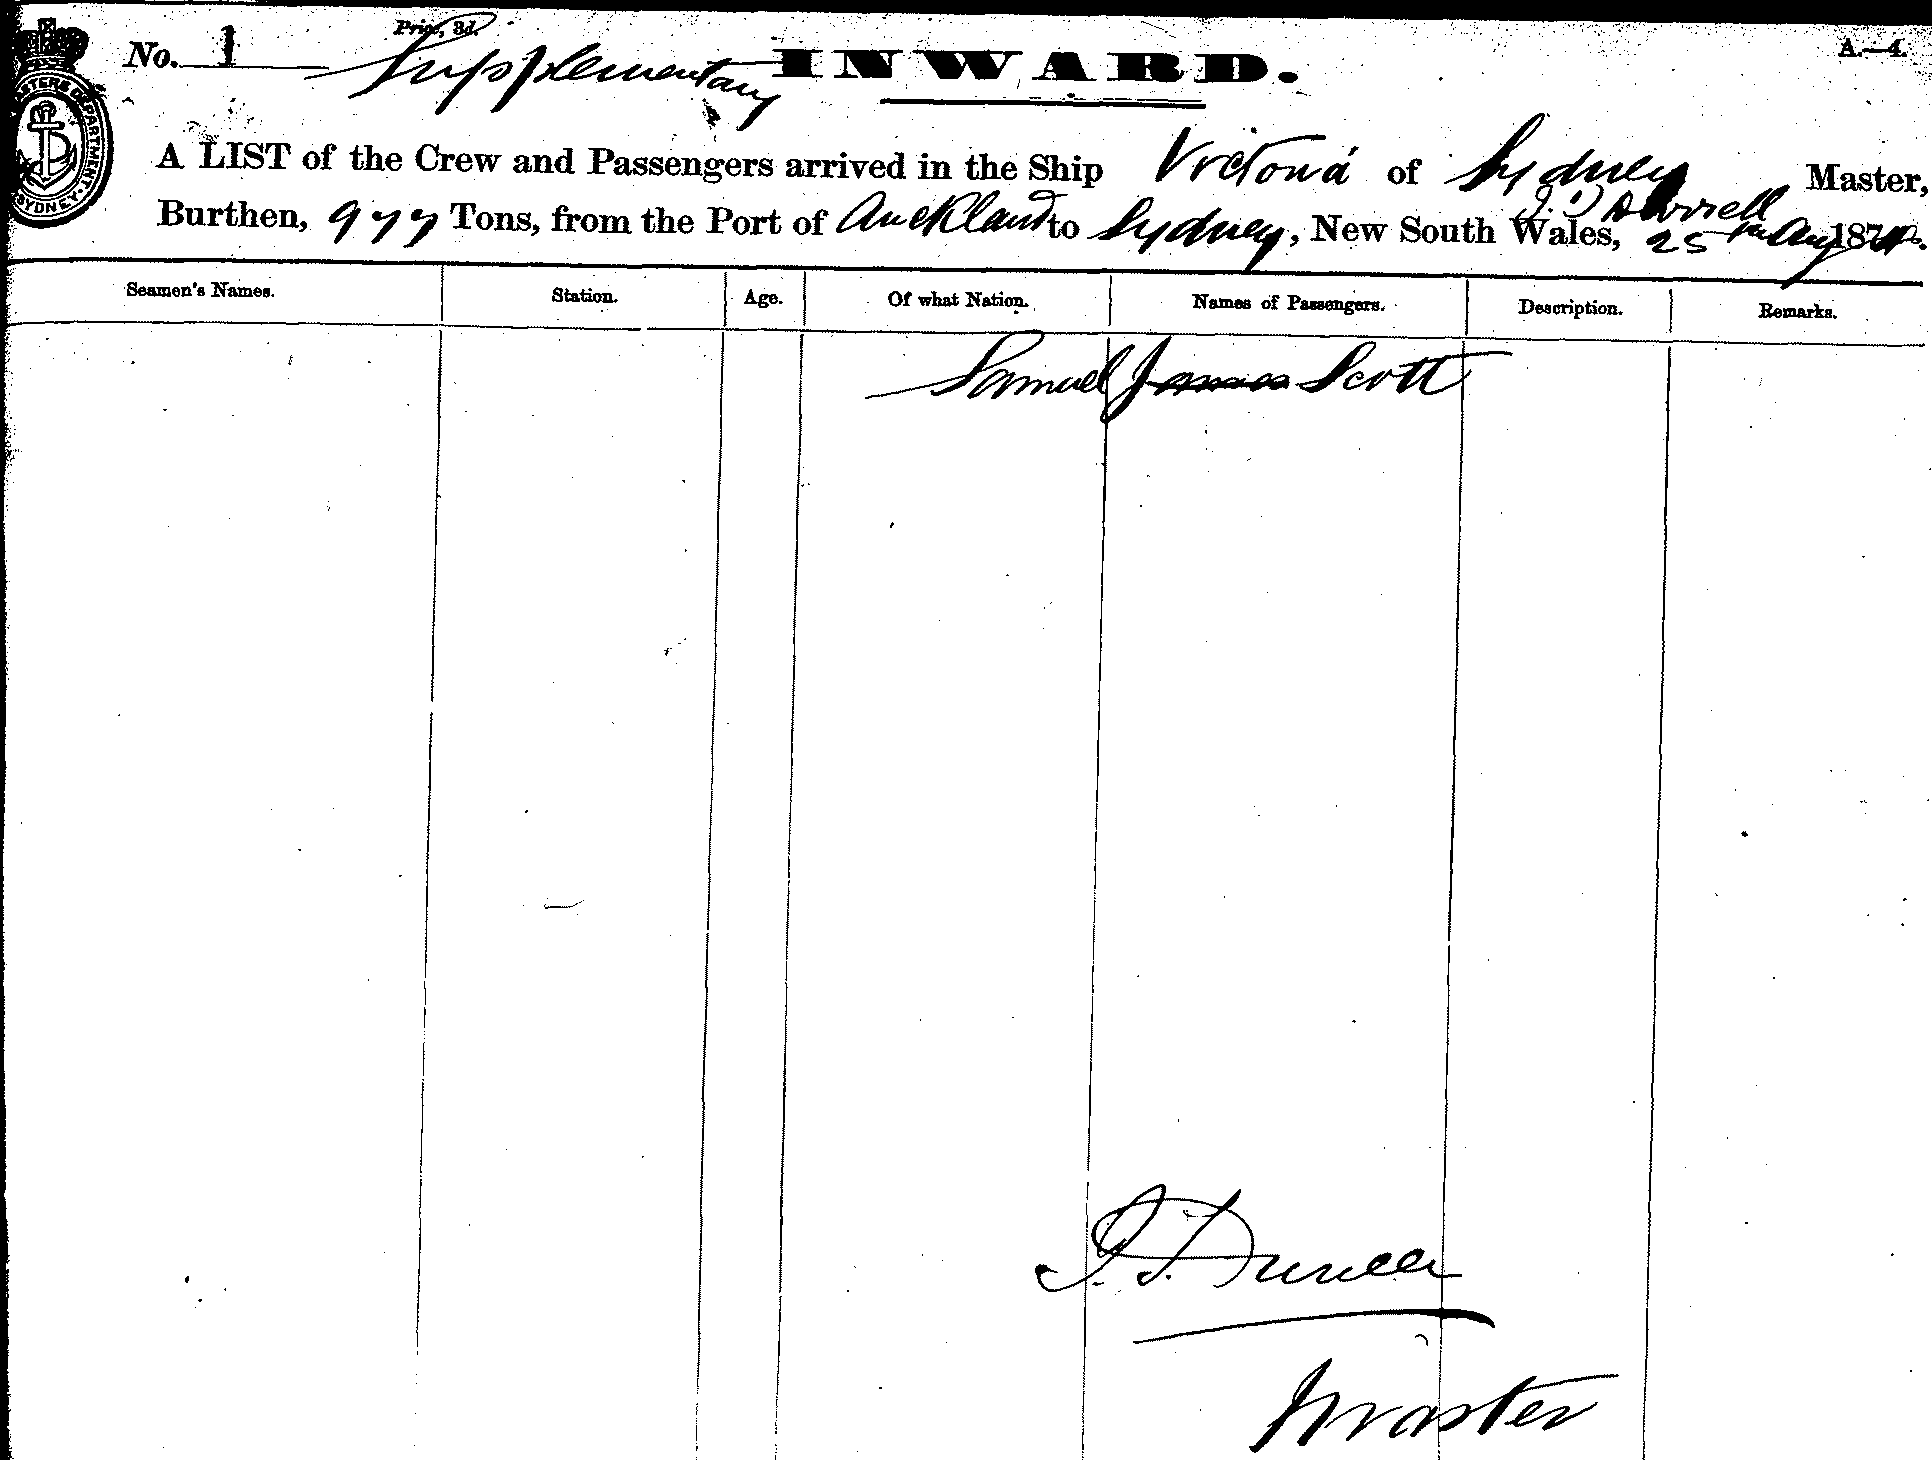 No. 1 Price, 3d. Supplementary INWARD. A.—4.
A LIST of the Crew and Passengers arrived in the Ship Victoria of Sydney Master,
Burthen, 977 Tons, from the Port of Auckland to Sydney, New South Wales, 25th Aug 187
Seamen's Names. Station. Age. Of what Nation. Names of Passengers. Description. Remarks.
Samuel James Scott
Master
SYDNEY